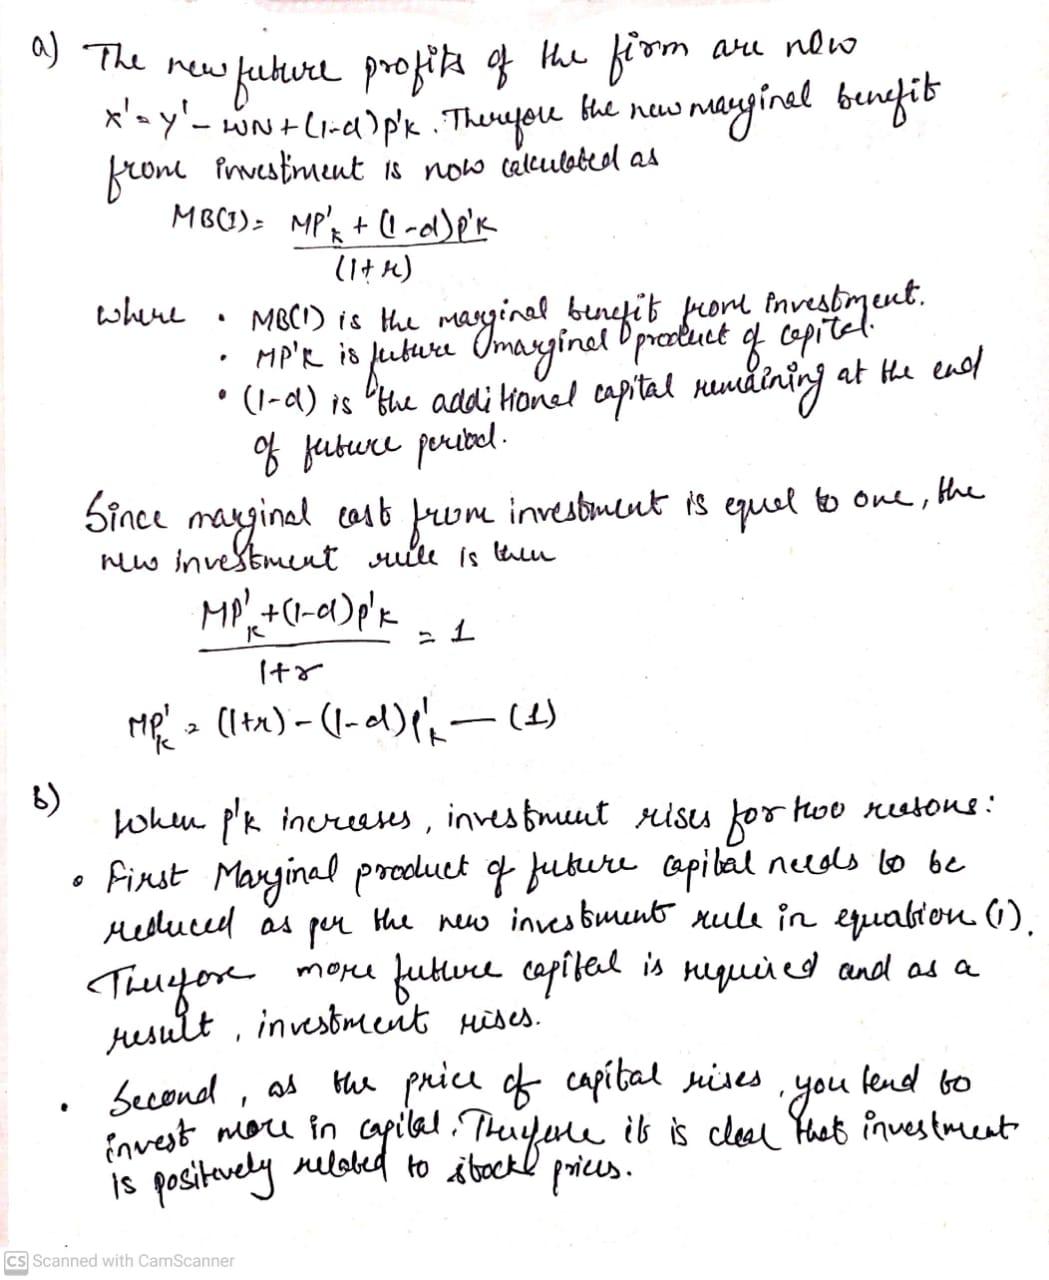 a) The new future profits of the firm are now
x' = y' - wN + (1-d)p'K. Therefore the new marginal benefit
from investment is now calculated as
MB(I) = MP'K + (1-d)p'K
(1+r)
where • MB(I) is the marginal benefit from investment.
• MP'K is future marginal product of capital.
• (1-d) is the additional capital remaining at the end
of future period.
Since marginal cost from investment is equal to one, the
new investment rule is then
MP'K + (1-d)p'K = 1
1+r
MP'K = (1+r) - (1-d)p'K — (1)
b)
When p'K increases, investment rises for two reasons:
• First Marginal product of future capital needs to be
reduced as per the new investment rule in equation (1).
Therefore more future capital is required and as a
result, investment rises.
• Second, as the price of capital rises, you tend to
invest more in capital. Therefore it is clear that investment
is positively related to stock prices.
CS Scanned with CamScanner